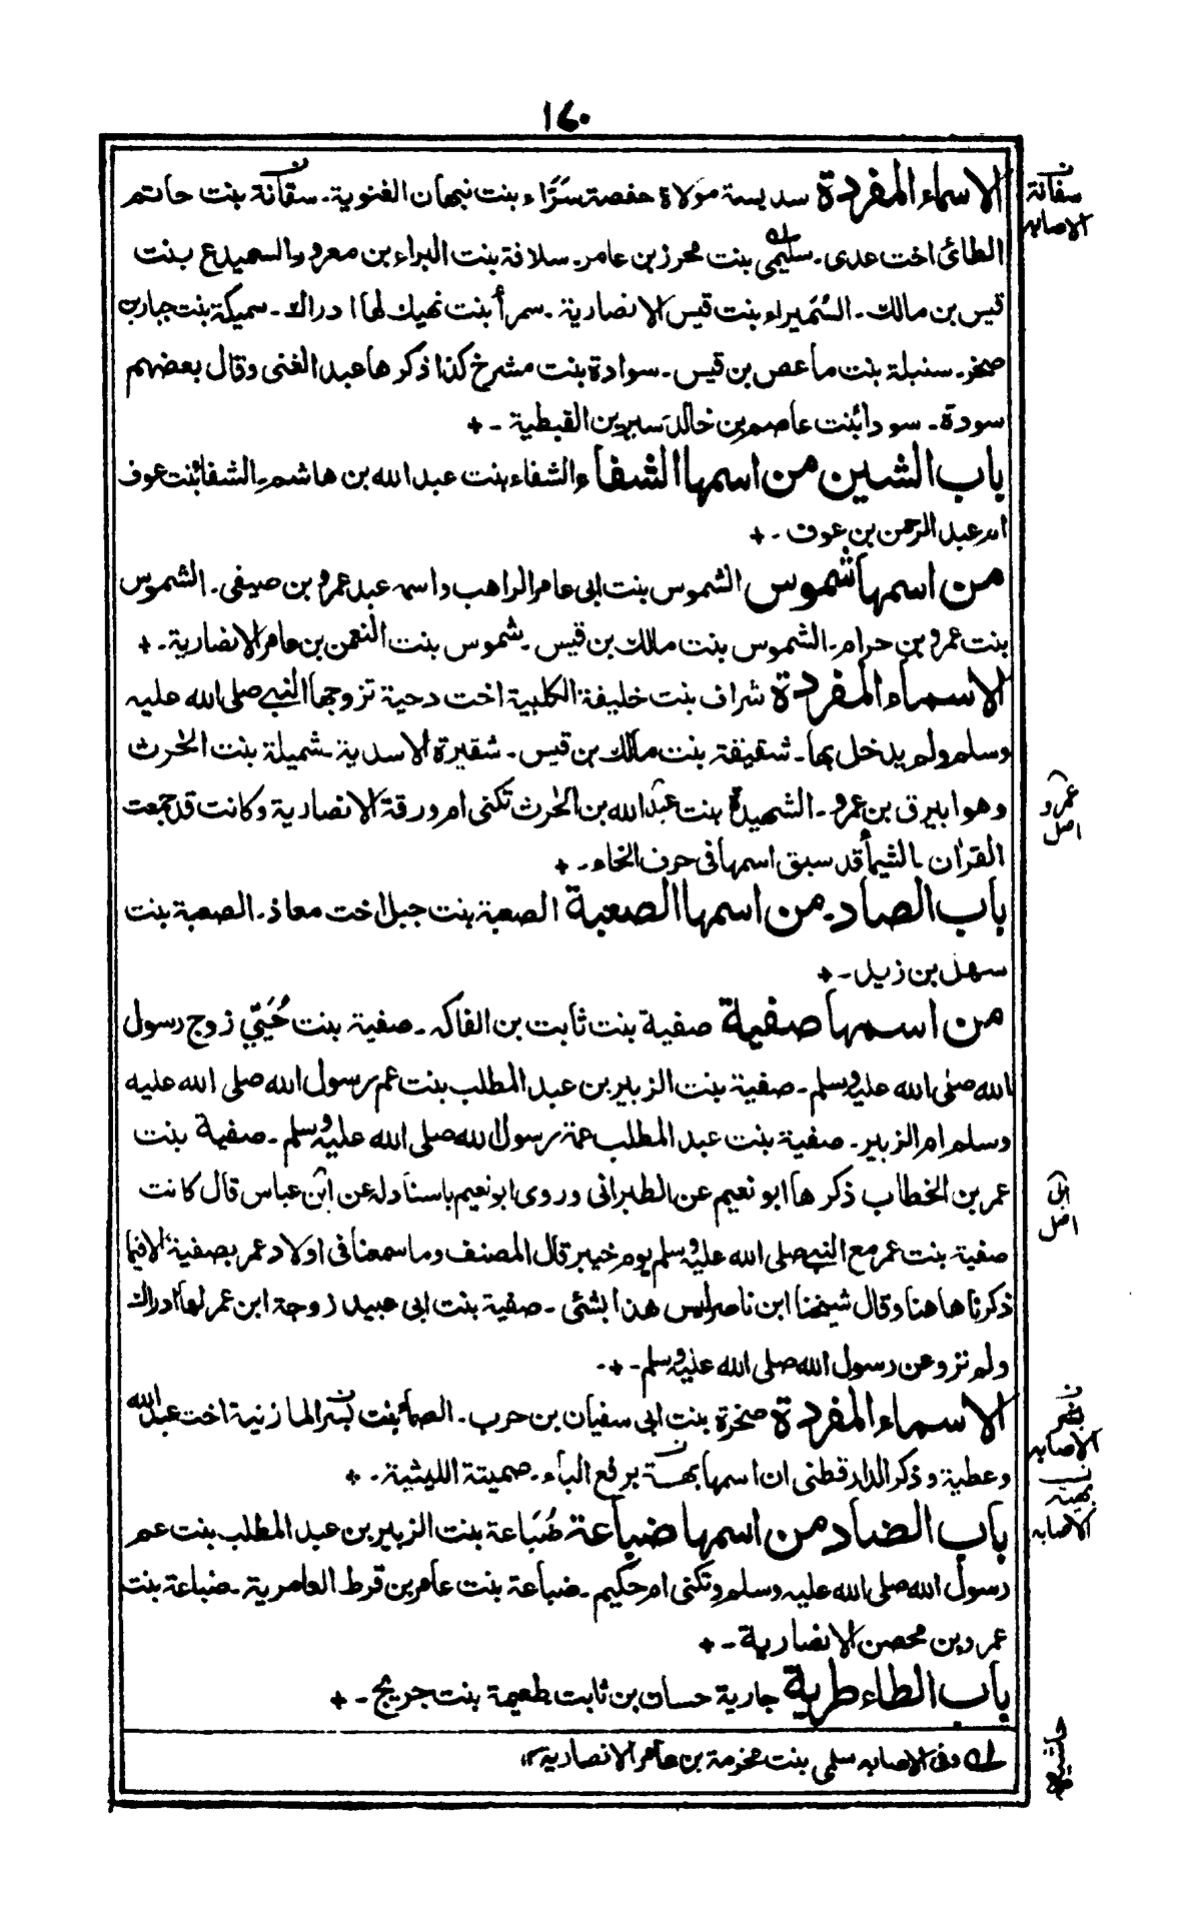 ١٧٠
الاسماء المفردة سديسة مولاة حفصة سَرَّاء بنت نبهان الغنوية۔ سقانة بنت حاتم
الطائى اخت عدى۔ سليمى بنت محرز بن عامر۔ سلافة بنت البراء بن معرور والسميدع بنت
قيس بن مالك۔ السُمَيراء بنت قيس الانصارية۔ سمرأ بنت نهيك لها ادراك۔ سميكة بنت جبار بن
صخر۔ سنبلة بنت ماعص بن قيس۔ سوادة بنت مشرخ كذا ذكرها عبد الغنى وقال بعضهم
سودة۔ سودا بنت عاصم بن خالد سيرين القبطية ۔+
باب الشين من اسمها الشفاء الشفاء بنت عبد الله بن هاشم۔ الشفا بنت عوف
ام عبد الرحمن بن عوف ۔+
من اسمها شموس الشموس بنت ابى عامر الراهب واسمه عبد عمرو بن صيفى۔ الشموس
بنت عمرو بن حرام۔ الشموس بنت مالك بن قيس۔ شموس بنت النعمن بن عامر الانصارية۔+
الاسماء المفردة شراف بنت خليفة الكلبية اخت دحية تزوجها النبي صلى الله عليه
وسلم ولم يدخل بها۔ شقيقة بنت مالك بن قيس۔ شقيرة الاسدية۔ شميلة بنت الحٰرث
وهو ابيرق بن عمرو۔ الشهيدة بنت عبد الله بن الحٰرث تكنى ام ورقة الانصارية وكانت قد جمعت
القراٰن۔ الشيمأ قد سبق اسمها فى حرف الخاء۔+
باب الصاد۔ من اسمها الصعبة الصعبة بنت جبل اخت معاذ۔ الصعبة بنت
سهل بن زيد۔+
من اسمها صفية صفية بنت ثابت بن الفاكه۔ صفية بنت حُيَيّ زوج رسول
الله صلى الله عليه وسلم۔ صفية بنت الزبير بن عبد المطلب بنت عم رسول الله صلى الله عليه
وسلم ام الزبير۔ صفية بنت عبد المطلب عمة رسول الله صلى الله عليه وسلم۔ صفية بنت
عمر بن الخطاب ذكرها ابو نعيم عن الطبرانى وروى ابو نعيم باسناد له عن ابن عباس قال كانت
صفية بنت عمر مع النبي صلى الله عليه وسلم يوم خيبر قال المصنف وما سمعنا فى اولاد عمر بصفية الا فيما
ذكرنا هاهنا وقال شيخنا ابن ناصر ليس هذا بشئى ۔ صفية بنت ابى عبيد زوجة ابن عمر لها ادراك
ولم تزو عن رسول الله صلى الله عليه وسلم۔+۔
الاسماء المفردة صخرة بنت ابى سفيان بن حرب۔ الصمأ بنت بسر المازنية اخت عبد الله
وعطية وذكر الدارقطنى ان اسمها بهسة برفع الباء۔ صميتة الليثية۔+
باب الضاد من اسمها ضباعة ضُبَاعة بنت الزبير بن عبد المطلب بنت عم
رسول الله صلى الله عليه وسلم وتكنى ام حكيم۔ ضباعة بنت عامر بن قرط العامرية۔ ضباعة بنت
عمرو بن محصن الانصارية۔+
باب الطاء طرية جارية حسان بن ثابت طعيمة بنت جريج۔+
له وفى الاصابه سلمى بنت مخرمة بن عامر الانصارية ١٢
ن
سفانة
الاصابه
عمرو
اصل
ابى
اصل
ن
الاصابه
ن
بهية
الاصابه
حاشية